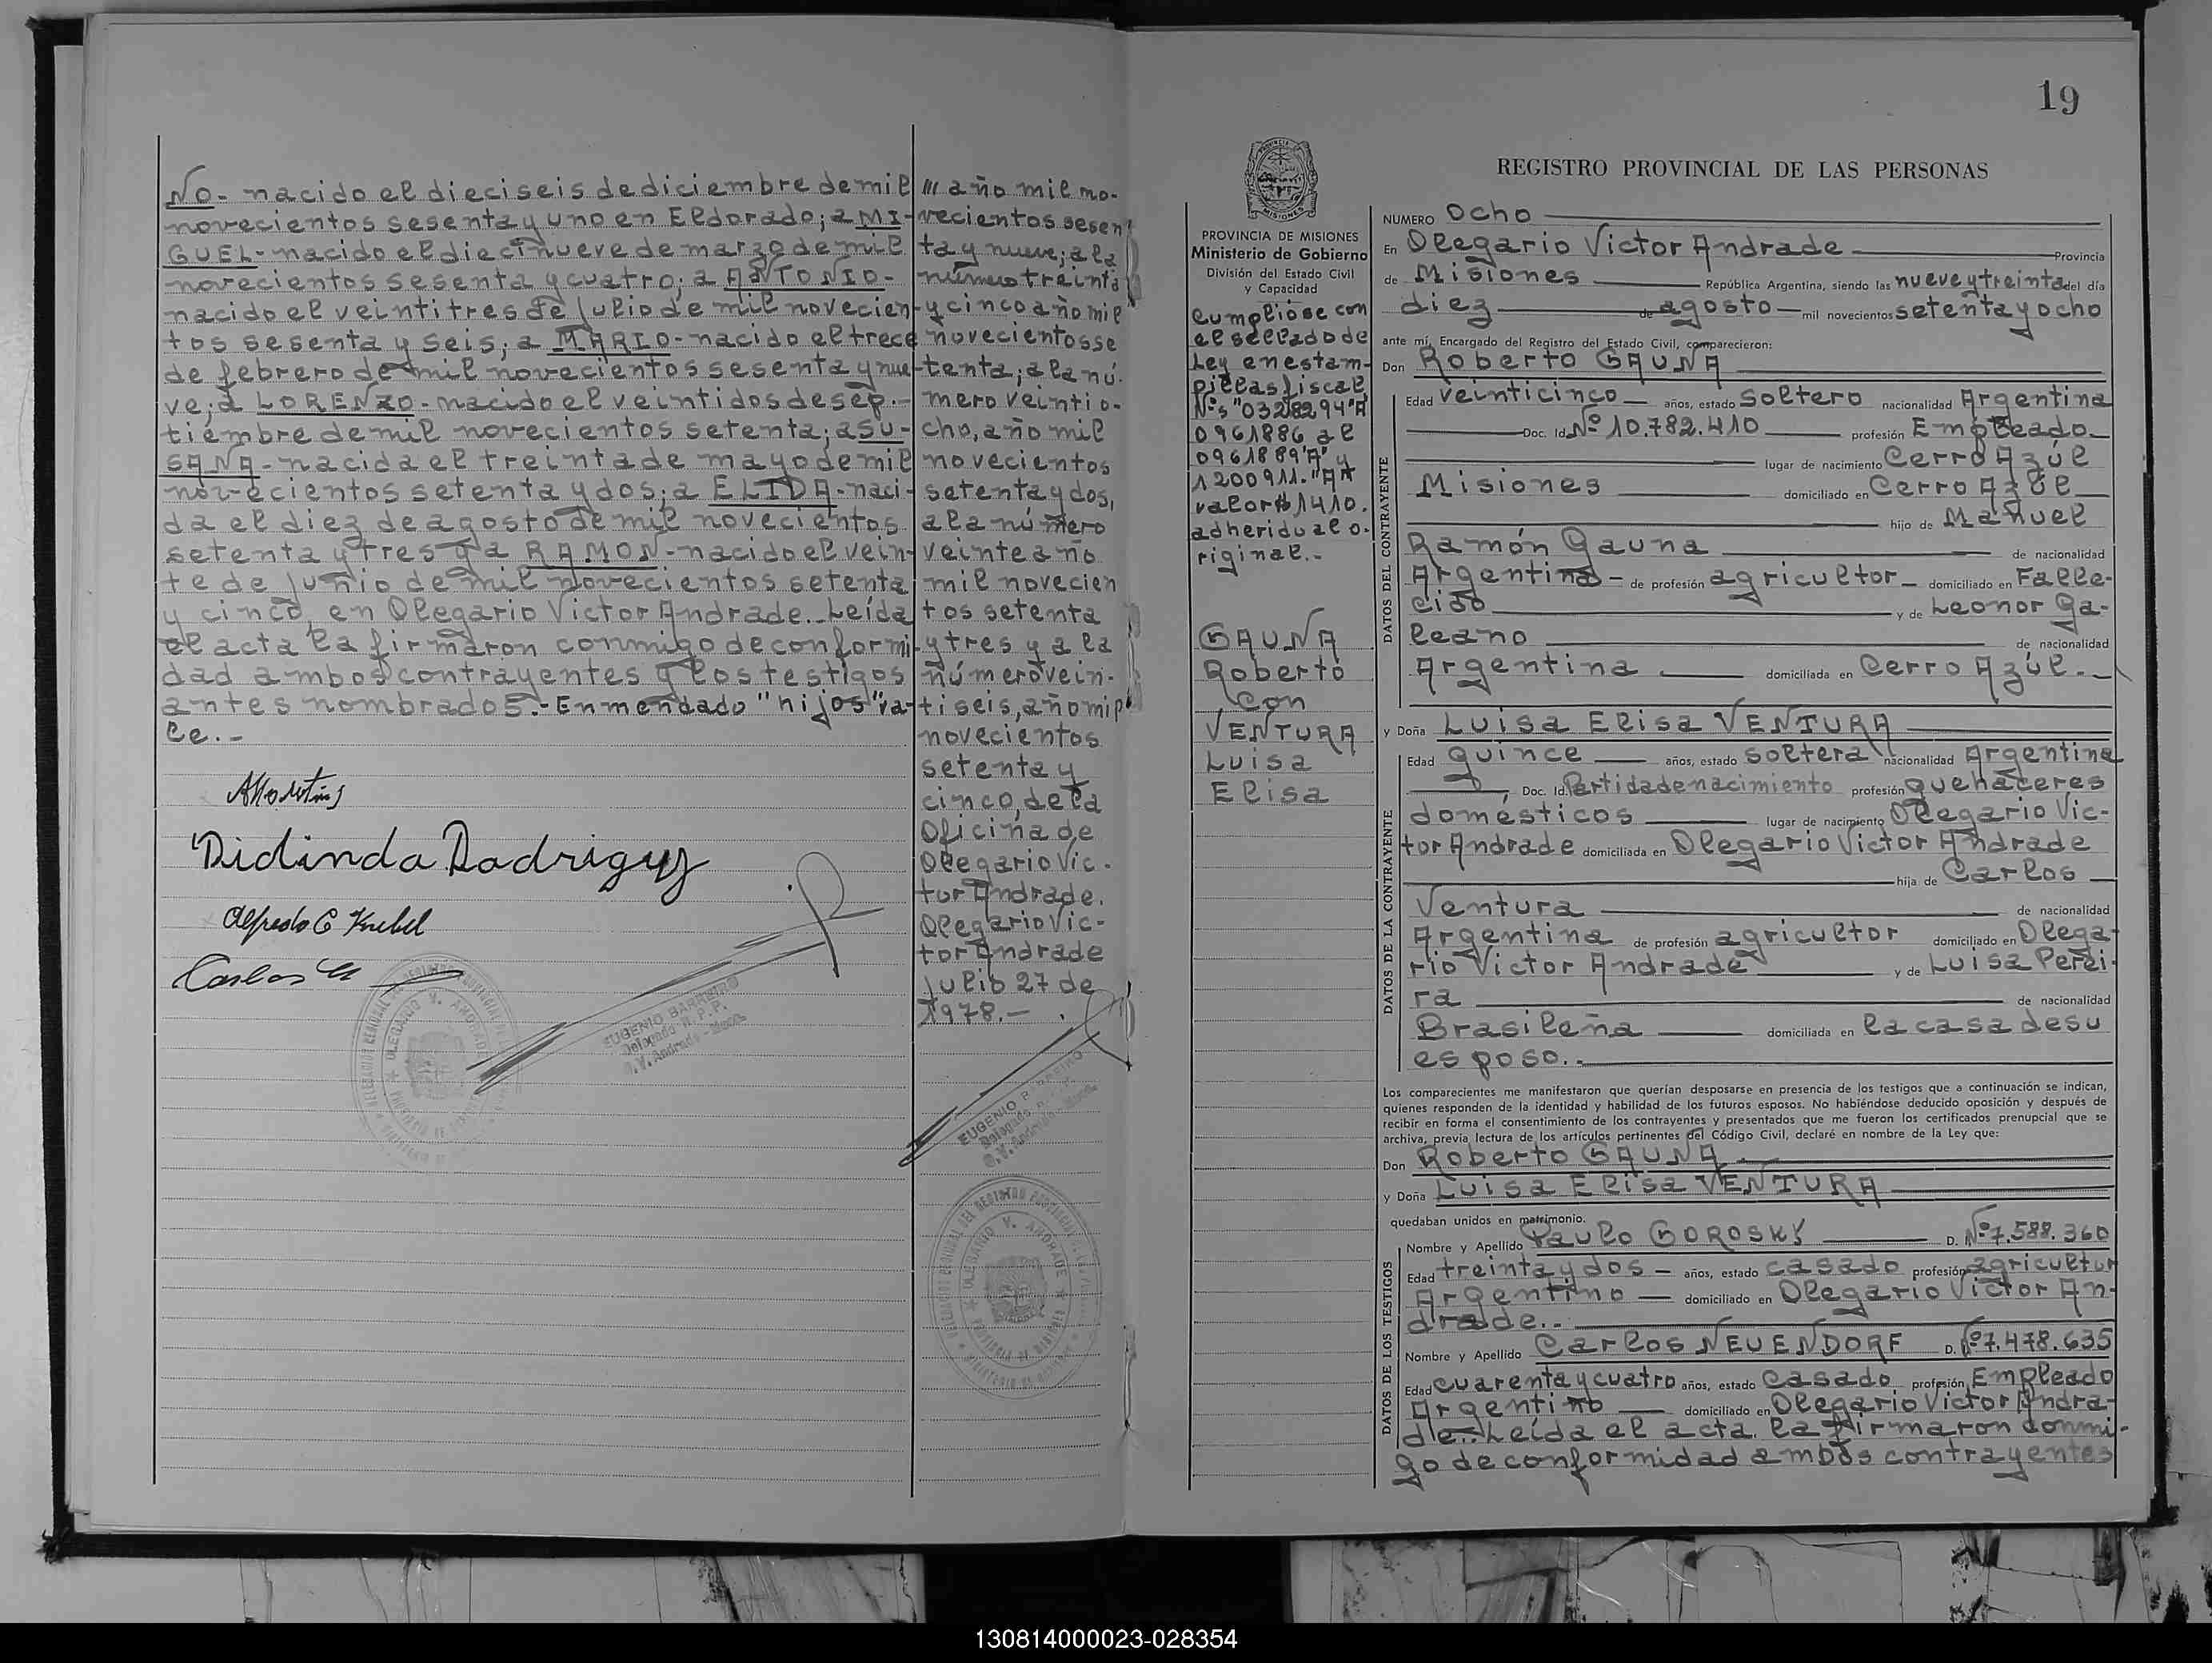 No.- nacido el dieciseis de diciembre de mil
novecientos sesenta y uno en Eldorado; a MI-
GUEL- nacido el diecinueve de marzo de mil
novecientos sesenta y cuatro; a ANTONIO-
nacido el veintitres de julio de mil novecien-
tos sesenta y seis; a MARIO- nacido el trece
de febrero de mil novecientos sesenta y nue-
ve; a LORENZO- nacido el veintidos de sep.-
tiembre de mil novecientos setenta; a SU-
SANA- nacida el treinta de mayo de mil
novecientos setenta y dos; a ELIDA- naci-
da el diez de agosto de mil novecientos
setenta y tres y a RAMON- nacido el vein-
te de junio de mil novecientos setenta
y cinco, en Olegario Victor Andrade.. Leída
el acta la firmaron conmigo de conformi-
dad ambos contrayentes y los testigos
antes nombrados.- Enmendado "hijos" va-
le.-
Didinda Rodriguez
Alfredo G Knebel
Carlos
EUGENIO BARREIRO
Delegado R.P.P.
O.V. Andrade - Mnes.
/// año mil no-
vecientos sesen
ta y nueve; a la
número treinta
y cinco año mil
novecientos se
tenta; a la nú-
mero veintio-
cho, año mil
novecientos
setenta y dos,
a la número
veinte año
mil novecien
tos setenta
y tres y a la
número vein-
tiseis, año mil
novecientos
setenta y
cinco, de la
Oficina de
Olegario Vic-
tor Andrade.
Olegario Vic-
tor Andrade
Julio 27 de
1978.-
EUGENIO BARREIRO
Delegado R.P.P.
O.V. Andrade - Mnes.
19
REGISTRO PROVINCIAL DE LAS PERSONAS
PROVINCIA DE MISIONES
Ministerio de Gobierno
División del Estado Civil
y Capacidad
Cumplióse con
el sellado de
Ley en estam-
pillas fiscal
Nºs "0328294"A
0961886 al
0961889"A" y
1200911."A"
valor $1410.
adherido al o-
riginal.-
GAUNA
Roberto
con
VENTURA
Luisa
Elisa
NUMERO Ocho
En Olegario Victor Andrade Provincia
de Misiones República Argentina, siendo las nueve y treinta del día
diez de agosto mil novecientos setenta y ocho
ante mí, Encargado del Registro del Estado Civil, comparecieron:
Don Roberto GAUNA
DATOS DEL CONTRAYENTE
Edad veinticinco años, estado soltero nacionalidad Argentina
Doc. Id. Nº 10.782.410 profesión Empleado
lugar de nacimiento Cerro Azúl
Misiones domiciliado en Cerro Azúl
hijo de Manuel
Ramón Gauna de nacionalidad
Argentina- de profesión agricultor- domiciliado en Falle-
cido y de Leonor Ga-
leano de nacionalidad
Argentina domiciliada en Cerro Azúl.-
y Doña Luisa Elisa VENTURA
DATOS DE LA CONTRAYENTE
Edad quince años, estado soltera nacionalidad Argentina
Doc. Id. Partida de nacimiento profesión quehaceres
domésticos lugar de nacimiento Olegario Vic-
tor Andrade domiciliada en Olegario Victor Andrade
hija de Carlos
Ventura de nacionalidad
Argentina de profesión agricultor domiciliado en Olega-
rio Victor Andrade y de Luisa Perei-
ra de nacionalidad
Brasileña domiciliada en la casa de su
esposo..
Los comparecientes me manifestaron que querían desposarse en presencia de los testigos que a continuación se indican,
quienes responden de la identidad y habilidad de los futuros esposos. No habiéndose deducido oposición y después de
recibir en forma el consentimiento de los contrayentes y presentados que me fueron los certificados prenupcial que se
archiva, previa lectura de los artículos pertinentes del Código Civil, declaré en nombre de la Ley que:
Don Roberto GAUNA
y Doña Luisa Elisa VENTURA
quedaban unidos en matrimonio.
DATOS DE LOS TESTIGOS
Nombre y Apellido Paulo GOROSKY D. Nº7.588.360
Edad treinta y dos - años, estado casado profesión agricultor
Argentino domiciliado en Olegario Victor An-
drade..
Nombre y Apellido Carlos NEUENDORF D. Nº7.478.635
Edad cuarenta y cuatro años, estado casado profesión Empleado
Argentino domiciliado en Olegario Victor Andra-
de.. Leída el acta. la firmaron conmi-
go de conformidad ambos contrayentes
130814000023-028354